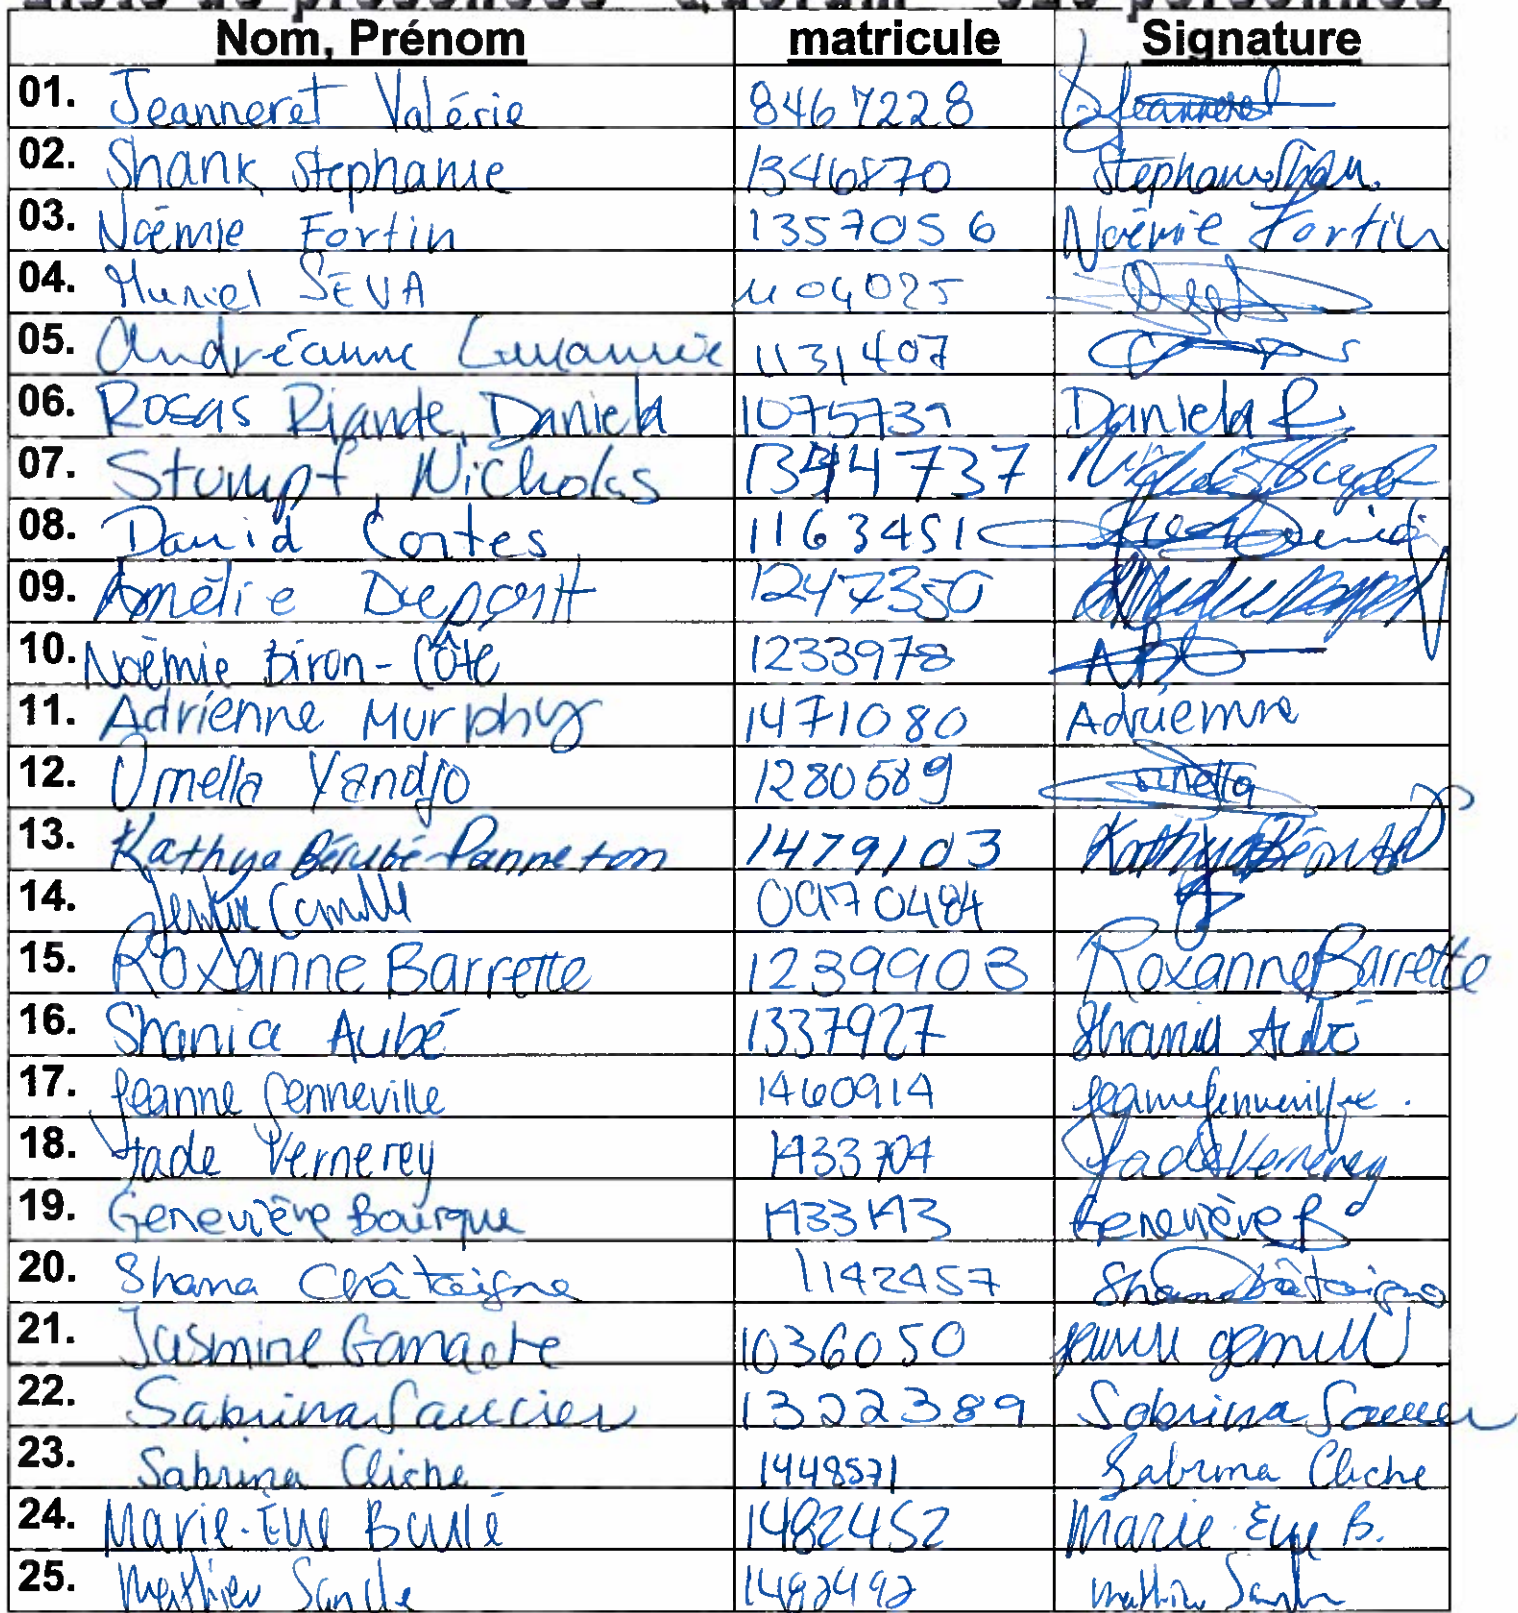 Liste de présences Quorum personnes
Nom, Prénom matricule Signature
01. Jeanneret Valérie 8467228 Jeanneret
02. Shank Stephanie 1346870 Stephanie Shan
03. Noémie Fortin 1357056 Noémie Fortin
04. Muriel SEVA 1104025
05. Andréanne 1131407
06. Rosas Riande, Daniela 1075739 Daniela R
07. Stumpf, Nicholas 1344737
08. David Cortes 1163451
09. Amélie Dupont 1247350
10. Noémie Biron-Côté 1233978
11. Adrienne Murphy 1471080 Adrienne
12. Ornella Yandjo 1280589 Ornella
13. Kathya Bérubé-Panneton 1479103 Kathya
14. Camille 0970484
15. Roxanne Barrette 1239903 Roxanne Barrette
16. Shania Aubé 1337927 Shania Aubé
17. Jeanne Senneville 1460914 Jeanne Senneville.
18. Jade Vernerey 1433704 Jade Vernerey
19. Geneviève Bourque 1433143 Geneviève B
20. Shana Châtaigne 1142457 Shana Châtaigne
21. Jasmine Gamache 1036050
22. Sabrina Saucier 1322389 Sabrina Saucier
23. Sabrina Cliche 1448571 Sabrina Cliche
24. Marie-Eve Boulé 1482452 Marie-Eve B.
25. Mathieu 1482492 Mathieu